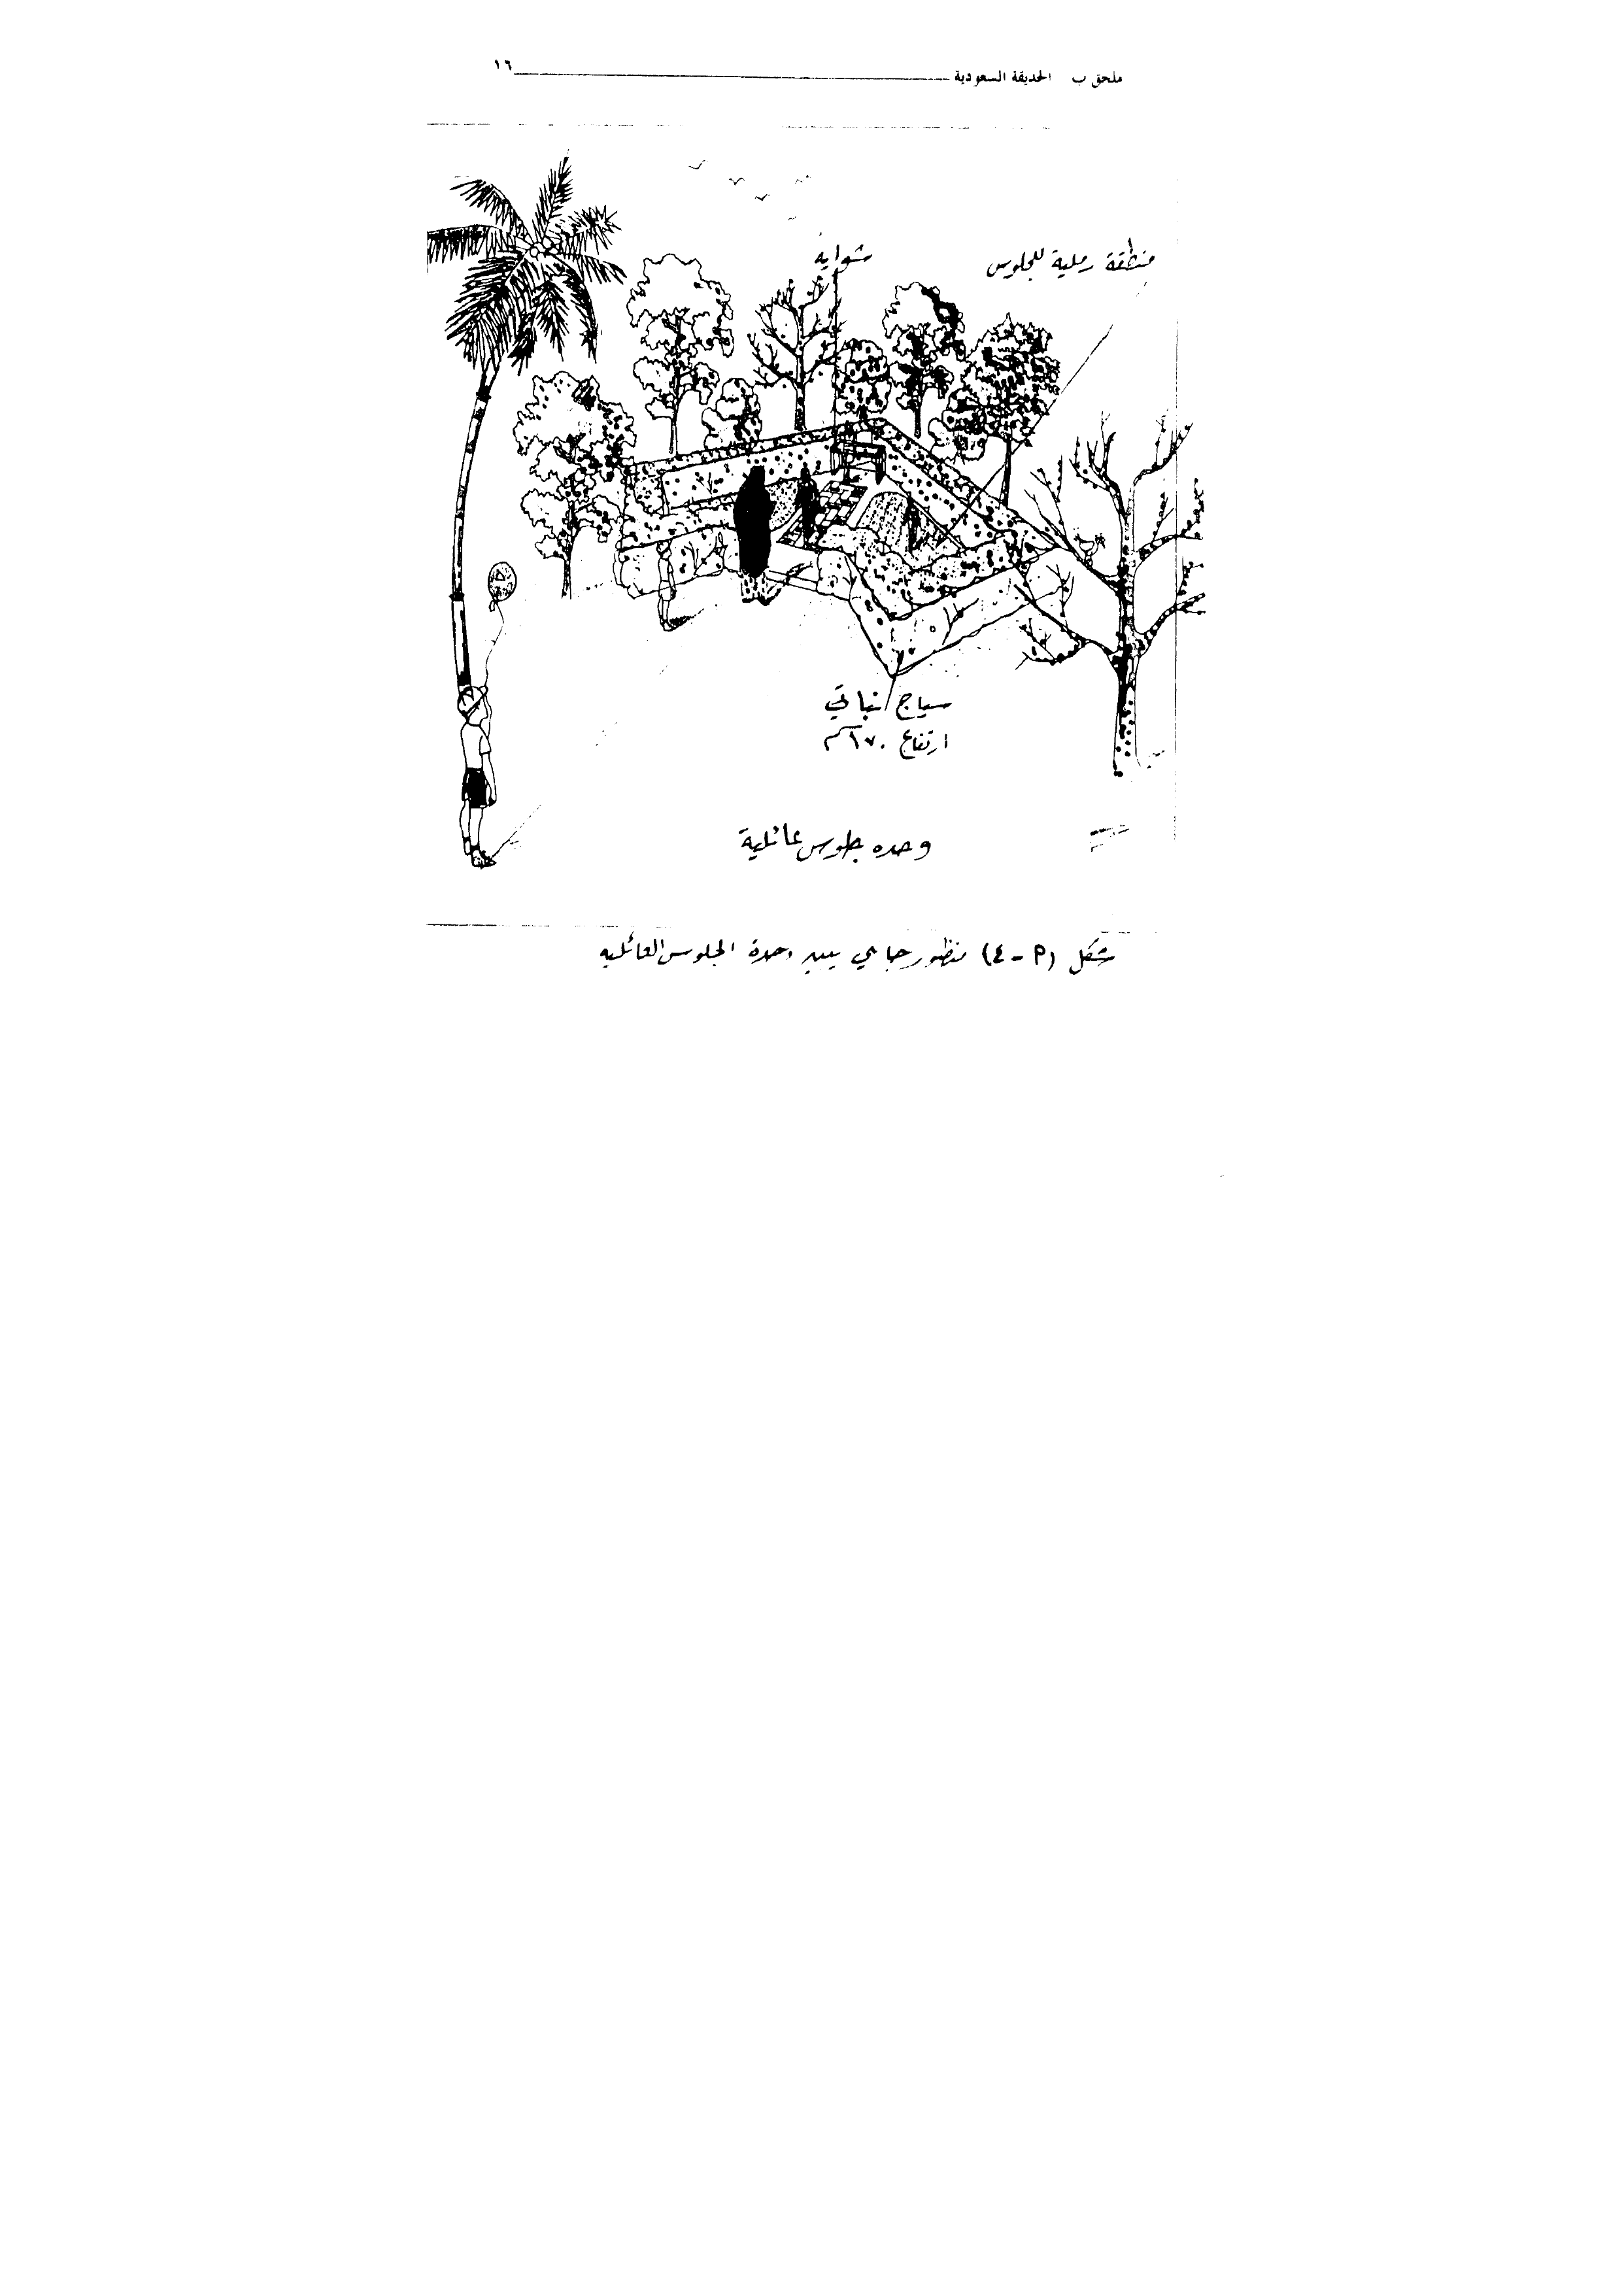 ملحق ب الحديقة السعودية ١٦
منطقة رملية للجلوس
شوايه
سياج نباتي
ارتفاع ١٧٠سم
وحده جلوس عائلية
شكل (٣-٤) منظور جمالي يبين وحدة الجلوس العائليه